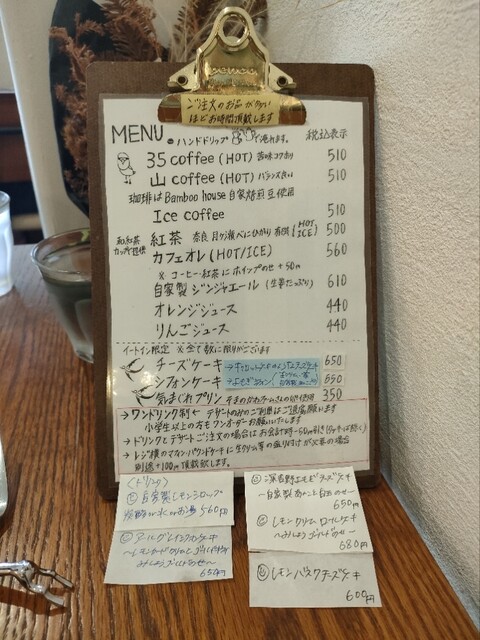 ご注文のお品が多い
ほどお時間頂戴します
MENU
ハンドドリップで淹れます。
税込表示
35 coffee (HOT) 苦味コクあり 510
山 coffee (HOT) バランス良い 510
珈琲は Bamboo house 自家焙煎豆使用
Ice coffee 510
紅茶 奈良 月ヶ瀬べにひかり HOT ICE 500
カフェオレ (HOT/ICE) 560
※ コーヒー・紅茶にホイップのせ +50円
自家製ジンジャエール (生姜たっぷり) 610
オレンジジュース 440
りんごジュース 440
イートイン限定 ※全て数に限りがございます
チーズケーキ 650
シフォンケーキ 650
気まぐれプリン 350
→ワンドリンク制です デザートのみのご利用はご遠慮願います
小学生以上の方もワンオーダーお願いいたします
→ドリンクとデザートご注文の場合はお会計時-50円引き
→レジ横のマフィン・パウンドケーキに生クリーム等の盛り付けが必要の場合
別途+100円頂戴致します。
〈ドリンク〉
自家製レモンシロップ
560円
アールグレイシフォンケーキ
650円
チーズケーキ
650円
レモンクリームロールケーキ
680円
レモンバスクチーズケーキ
600円